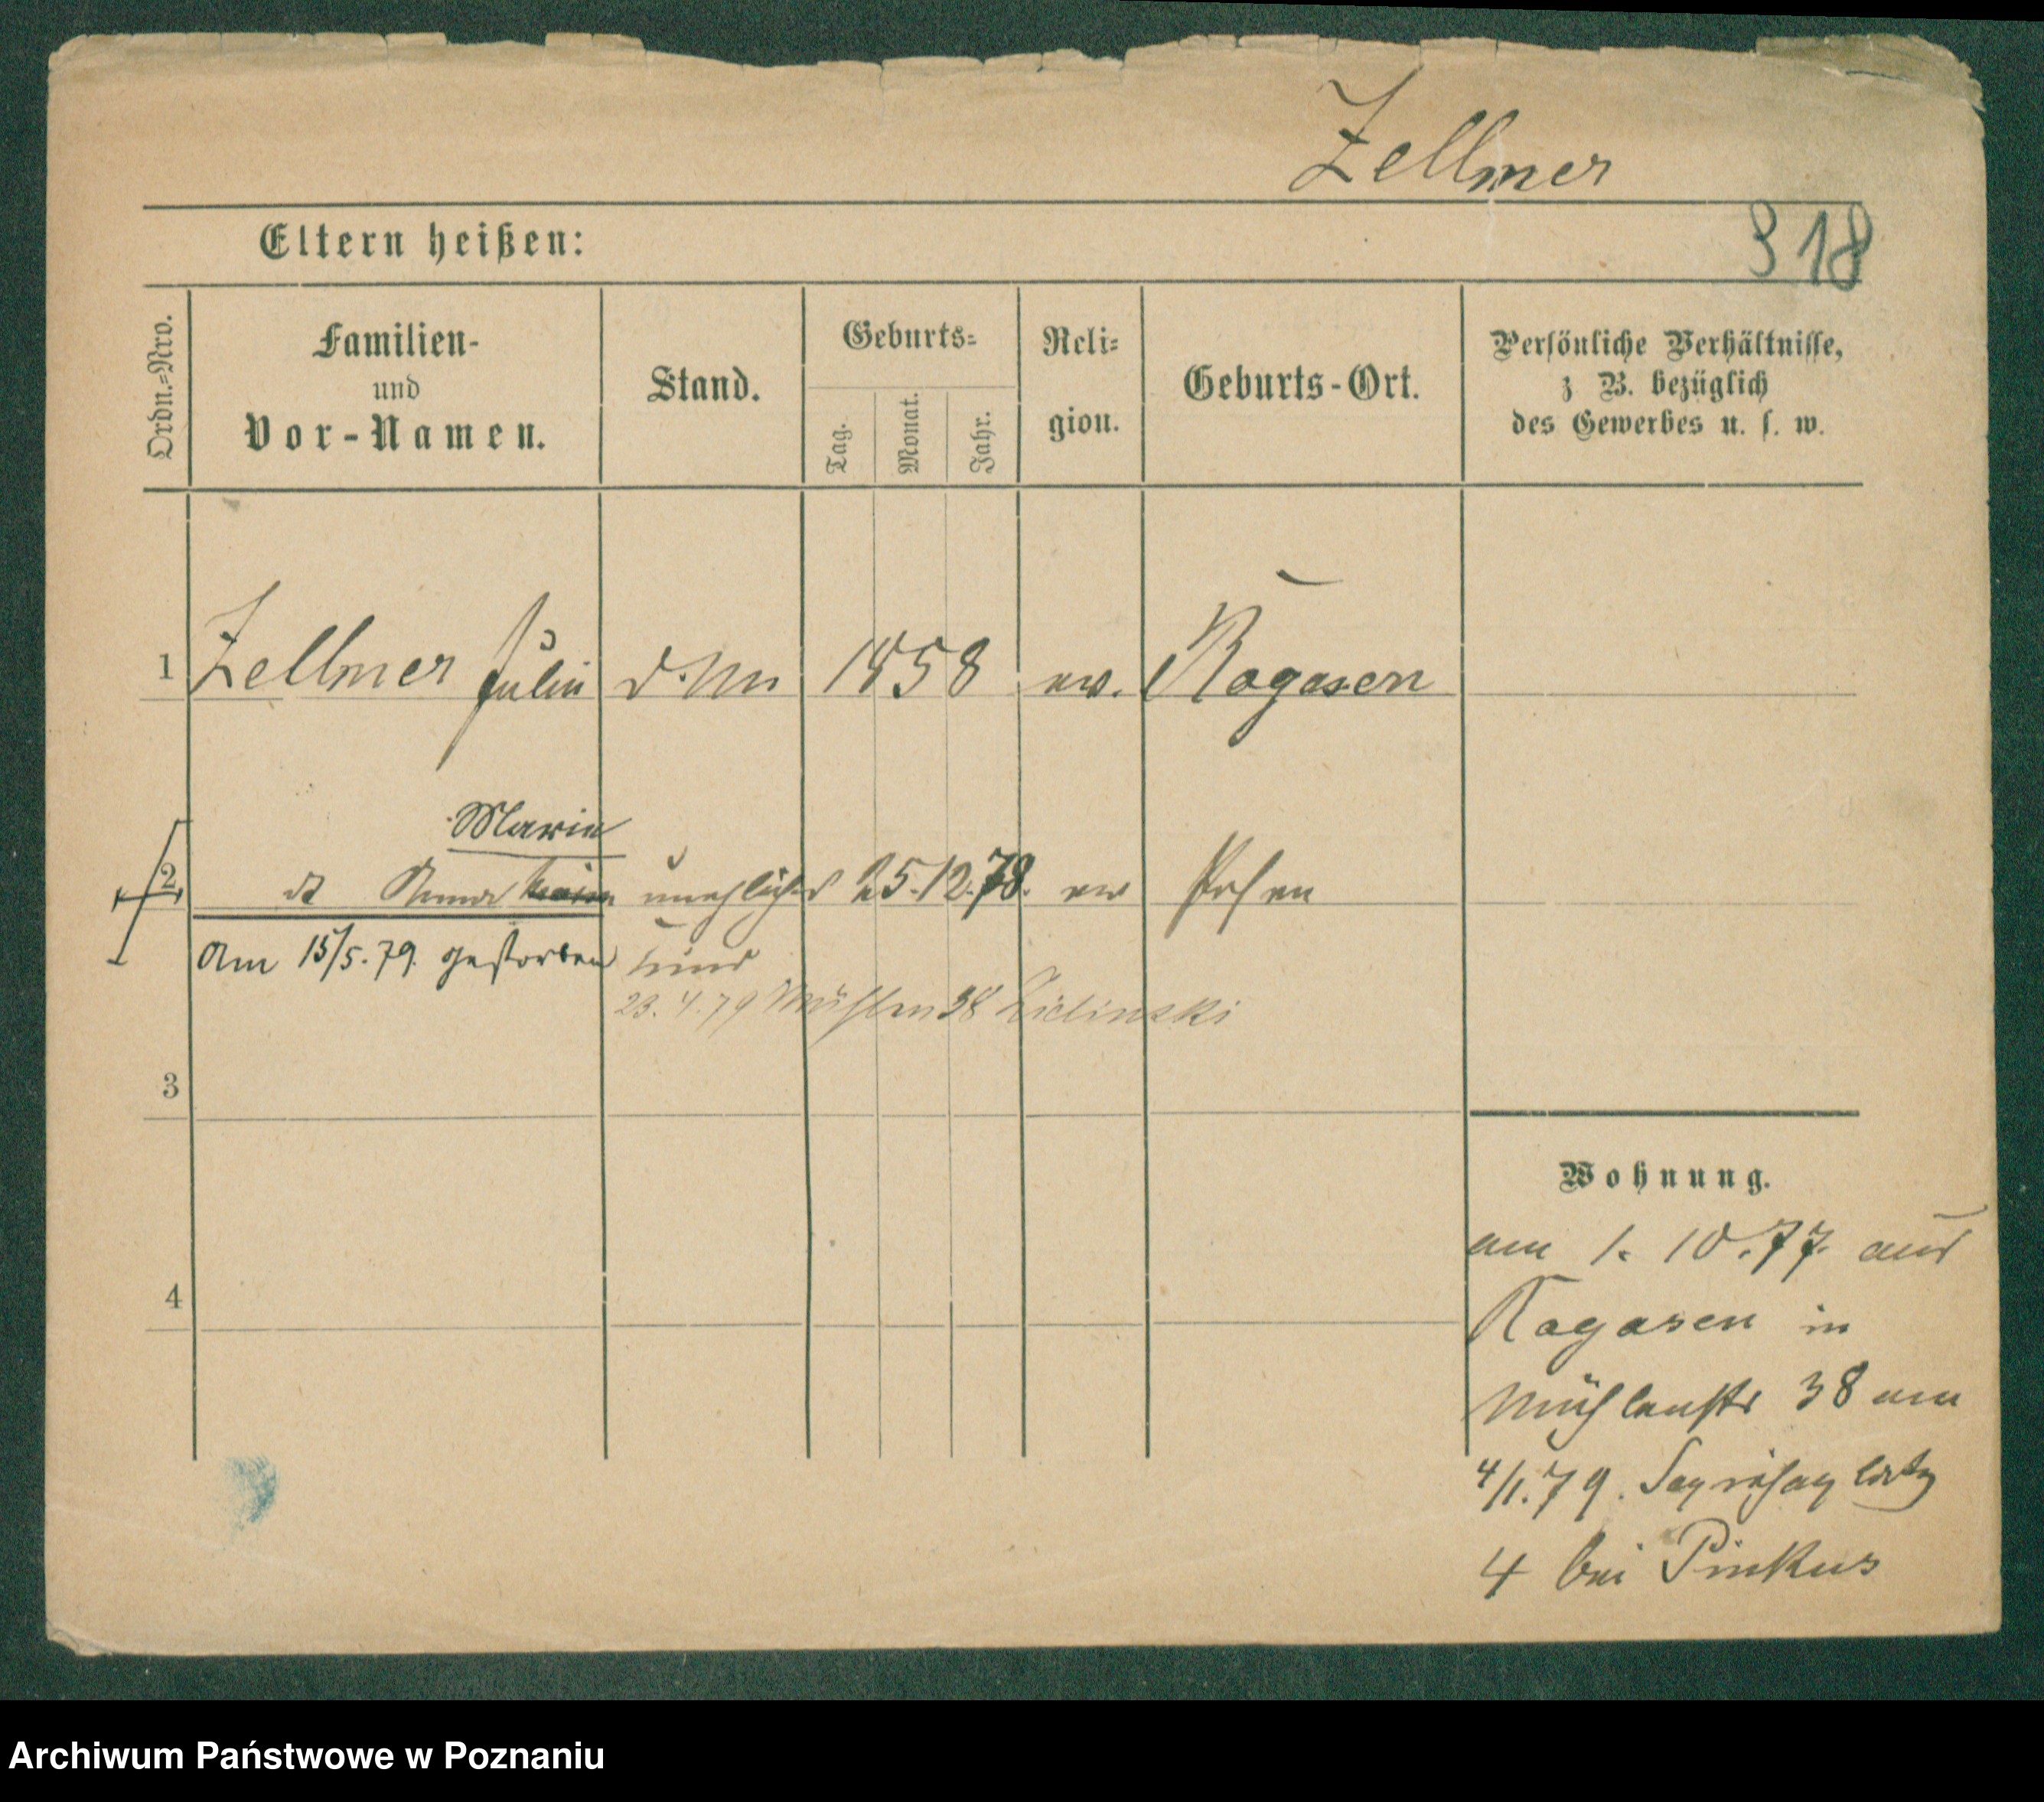 Zellmer
318
Eltern heißen:
Ordn.=Nro.
Familien-
und
Vor-Namen.
Stand.
Geburts=
Tag.
Monat.
Jahr.
Reli=
gion.
Geburts-Ort.
Persönliche Verhältnisse,
z B. bezüglich
des Gewerbes u. s. w.
1 Zellmer Julie 1858 ev. Rogasen
Marie
2 Anna unehliches 25.12.78. ev Posen
Am 15/5.79. gestorben Kind
23.4.79 Mühlen 38 Zielinski
3
4
Wohnung.
am 1. 10.77. aus
Rogasen in
Mühlenstr 38 am
4/1.79. Sapiehaplatz
4 bei Pinkus
Archiwum Państwowe w Poznaniu